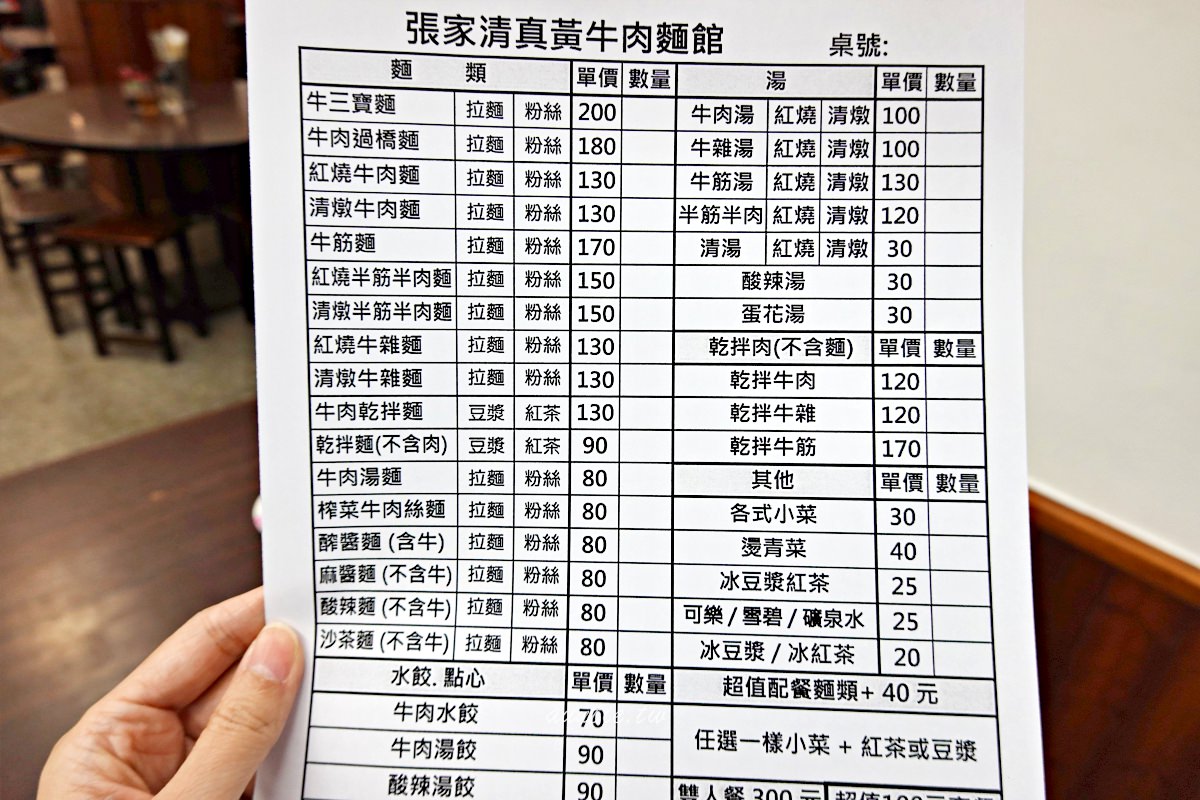 張家清真黃牛肉麵館 桌號:
麵 類 單價 數量
牛三寶麵 拉麵 粉絲 200
牛肉過橋麵 拉麵 粉絲 180
紅燒牛肉麵 拉麵 粉絲 130
清燉牛肉麵 拉麵 粉絲 130
牛筋麵 拉麵 粉絲 170
紅燒半筋半肉麵 拉麵 粉絲 150
清燉半筋半肉麵 拉麵 粉絲 150
紅燒牛雜麵 拉麵 粉絲 130
清燉牛雜麵 拉麵 粉絲 130
牛肉乾拌麵 豆漿 紅茶 130
乾拌麵(不含肉) 豆漿 紅茶 90
牛肉湯麵 拉麵 粉絲 80
榨菜牛肉絲麵 拉麵 粉絲 80
醡醬麵 (含牛) 拉麵 粉絲 80
麻醬麵 (不含牛) 拉麵 粉絲 80
酸辣麵 (不含牛) 拉麵 粉絲 80
沙茶麵 (不含牛) 拉麵 粉絲 80
水餃. 點心 單價 數量
牛肉水餃 70
牛肉湯餃 90
酸辣湯餃 90
湯 單價 數量
牛肉湯 紅燒 清燉 100
牛雜湯 紅燒 清燉 100
牛筋湯 紅燒 清燉 130
半筋半肉 紅燒 清燉 120
清湯 紅燒 清燉 30
酸辣湯 30
蛋花湯 30
乾拌肉(不含麵) 單價 數量
乾拌牛肉 120
乾拌牛雜 120
乾拌牛筋 170
其他 單價 數量
各式小菜 30
燙青菜 40
冰豆漿紅茶 25
可樂 / 雪碧 / 礦泉水 25
冰豆漿 / 冰紅茶 20
超值配餐麵類+ 40 元
任選一樣小菜 + 紅茶或豆漿
雙人餐 300 元 超值100元套餐